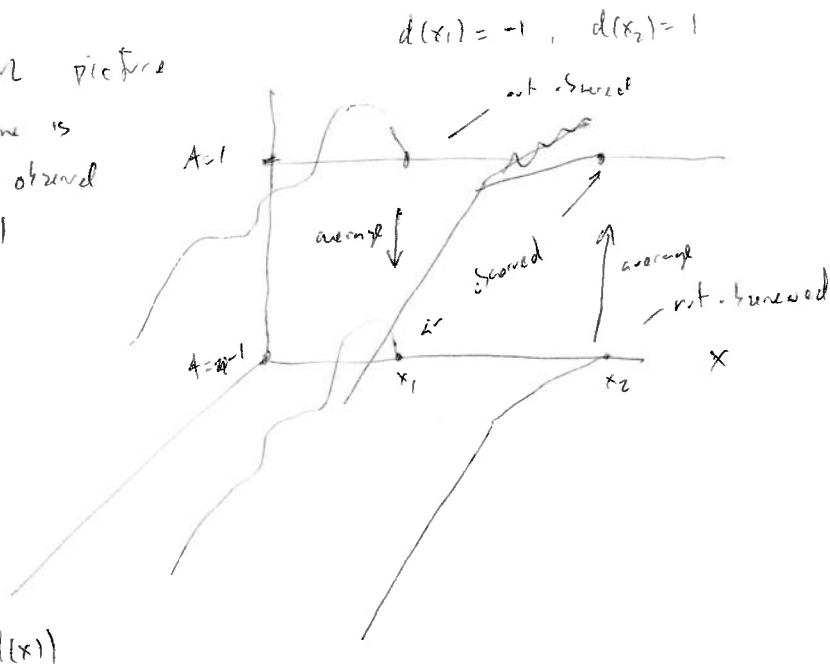 d(x₁) = -1 , d(x₂) = 1
picture
is
A=1
not observed
observed
average
observed
average
not observed
A=-1
x₁
x₂
X
(x))